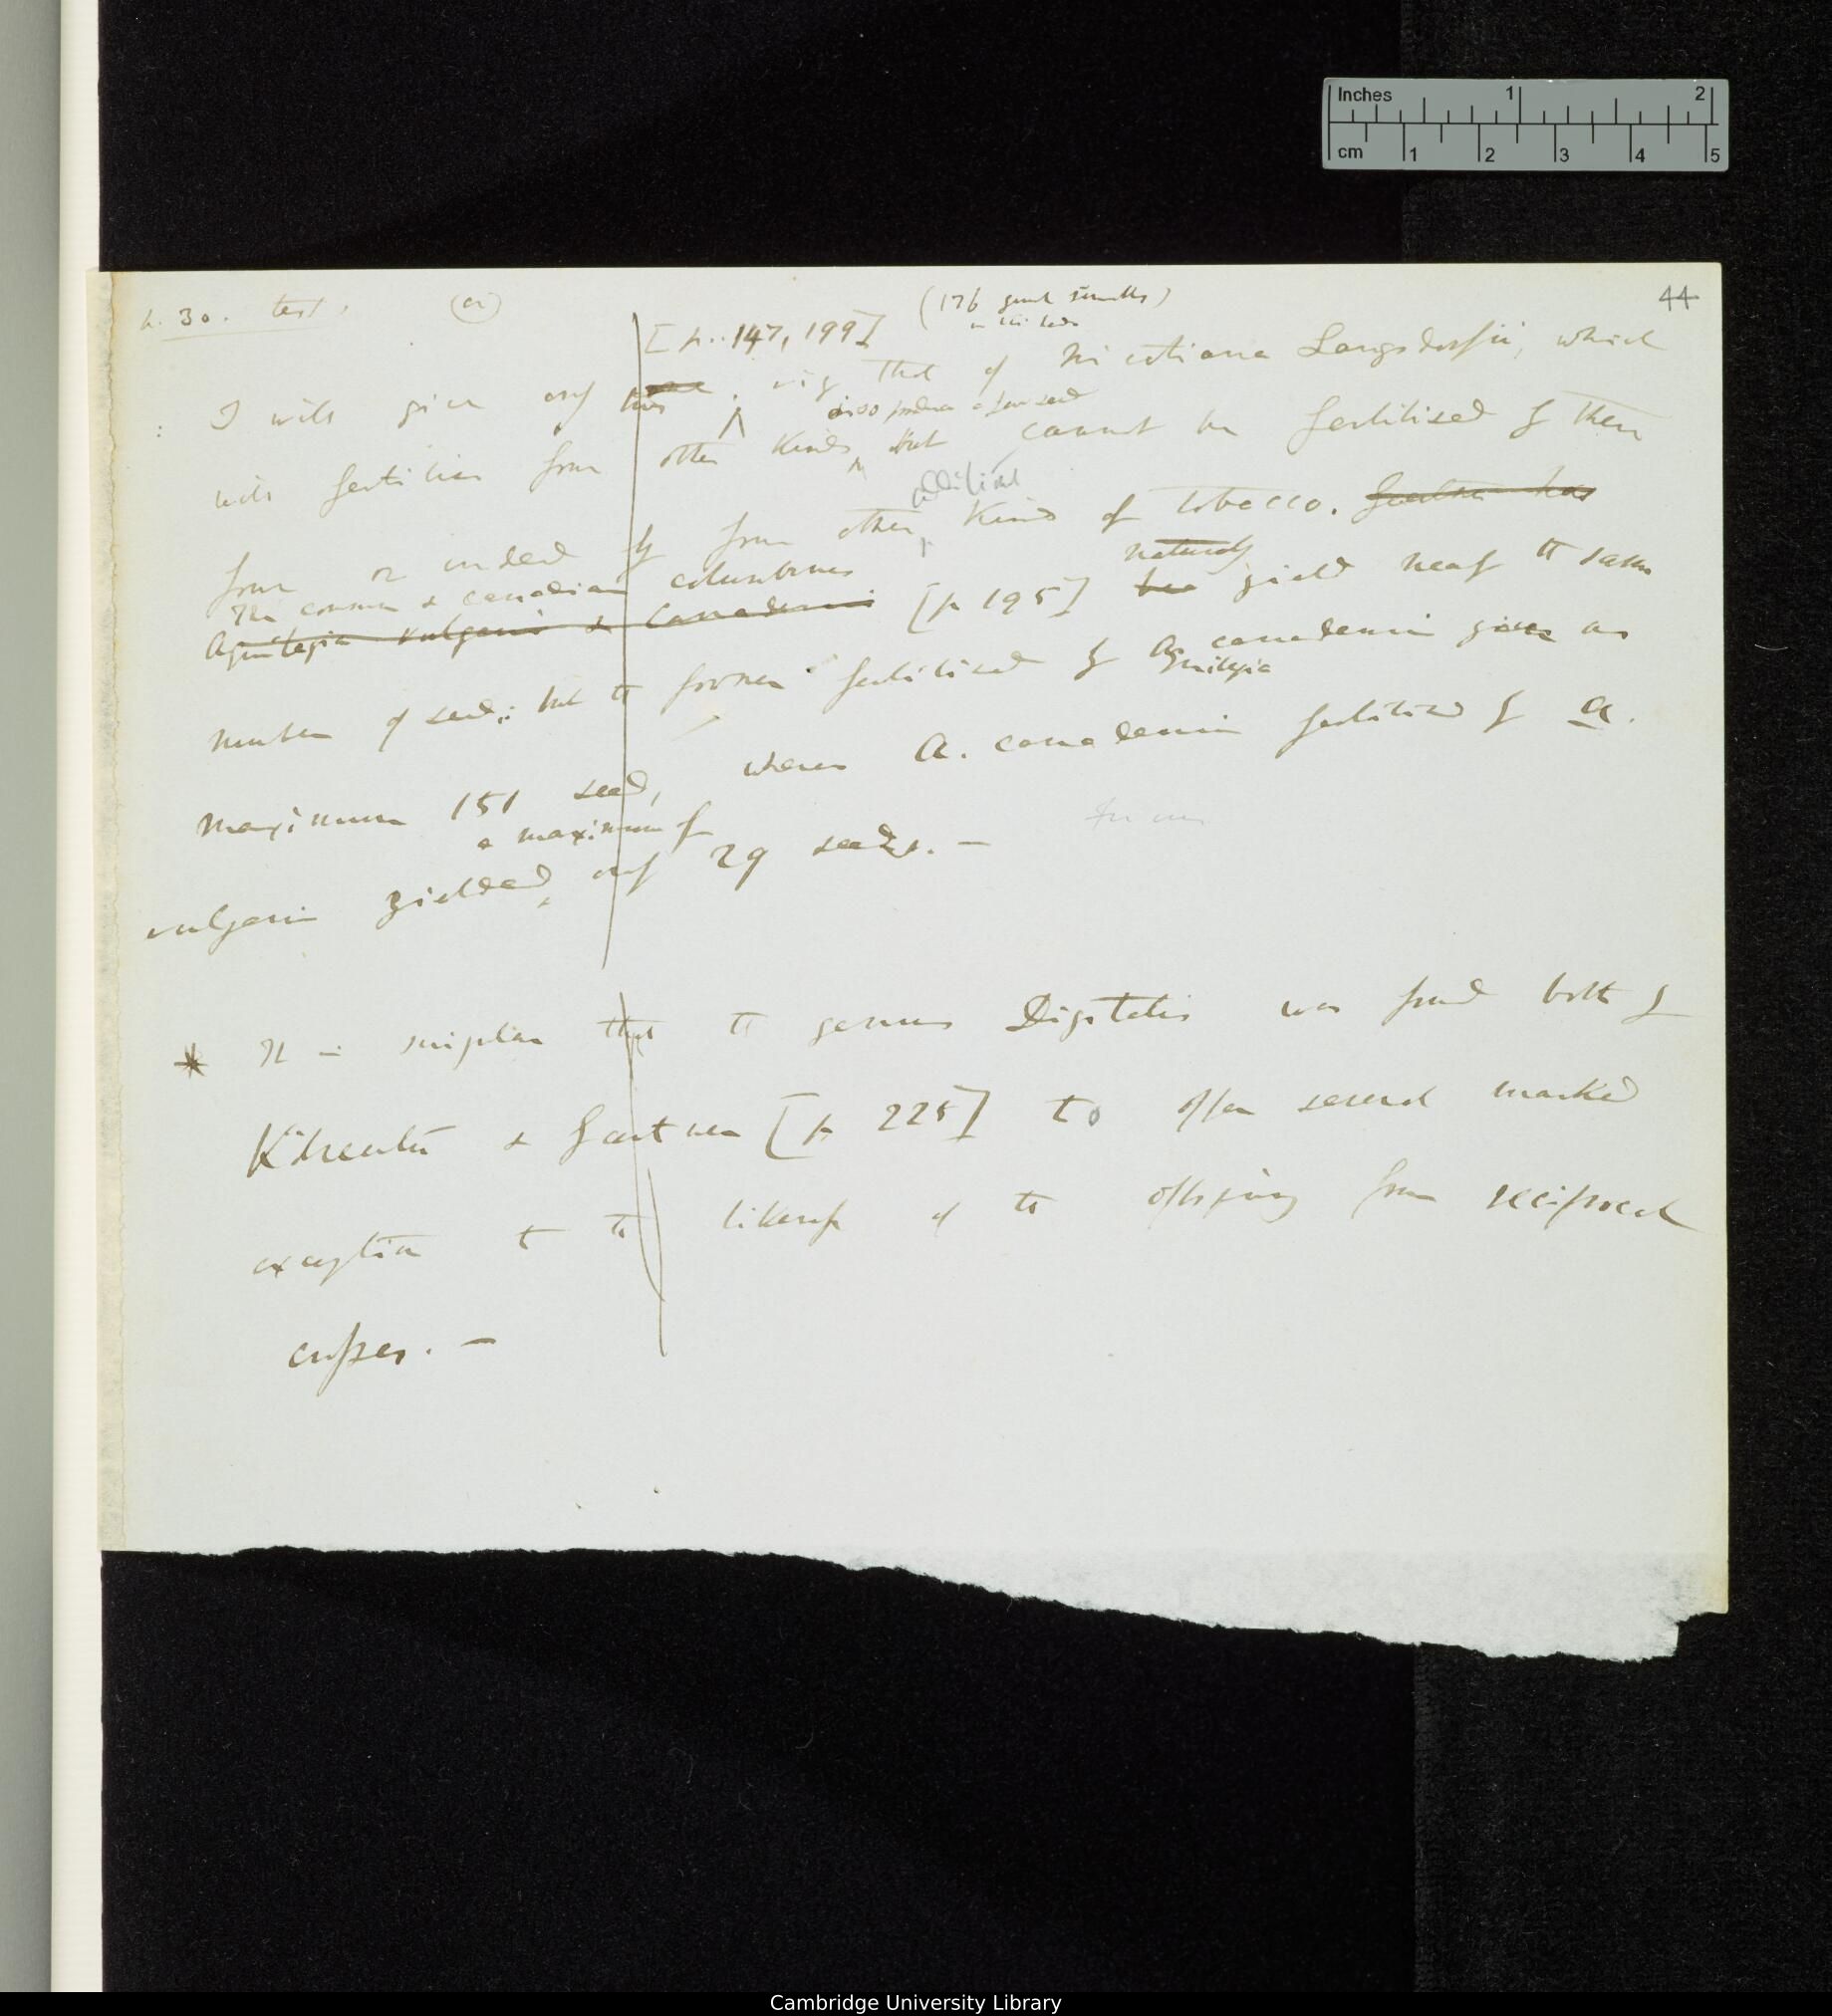 p. 30. text. (a)
44
[p. 147, 199]
(176 good
I will give only two, viz that of Nicotiana Langsdorfii, which
also produce a few seed
will fertilise four other kinds, but cannot be fertilised by these
additional
four or indeed by four other, kinds of tobacco. Gærtner has
The common & canadian columbines
naturally
Aquilegia vulgaris & Canadensis [p 195] yield nearly the same
number of seed; but the former fertilised by A. canadensis gave as
Aquilegia
maximum 151 seed, whereas A. canadensis fertilised by A.
a maximum of
vulgaris yielded, only 29 seeds. —
* It is singular that the genus Digitalis was found both by
Kölreuter & Gærtner [p 225] to offer several marked
exception to the likeness of the offspring from reciprocal
crosses. —
Inches 1 2
cm 1 2 3 4 5
Cambridge University Library